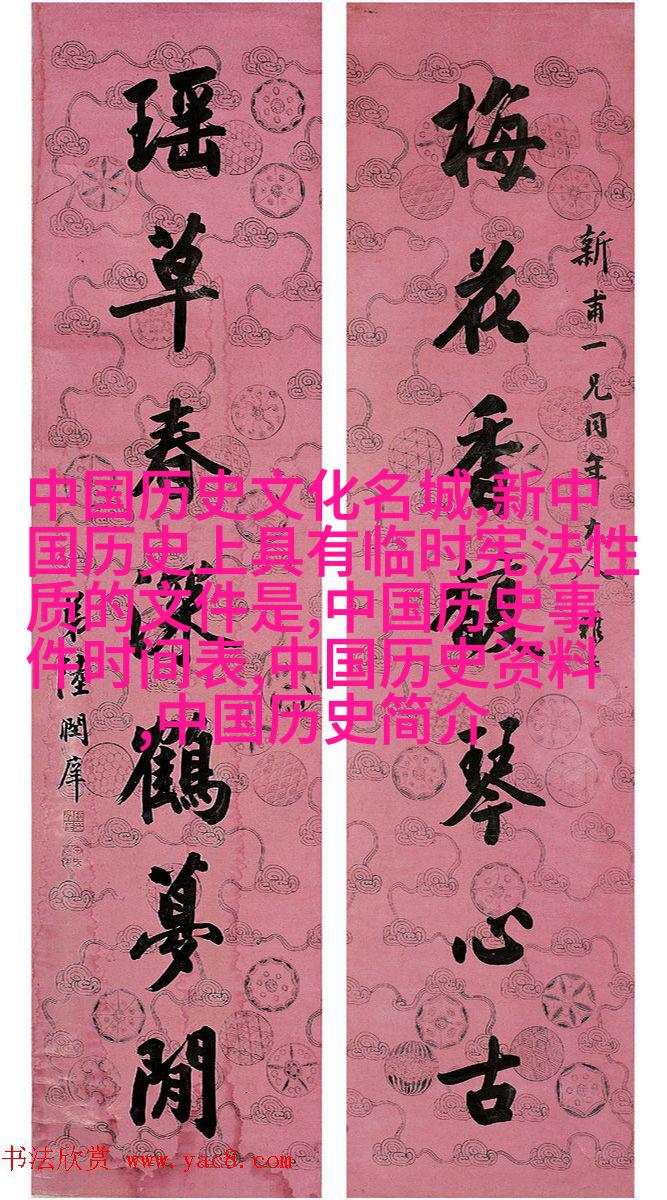 新甫一兄同年大人雅
梅花香琴心古
瑶草春深鶴夢閒
陸潤庠
中国历史文化名城,新中
国历史上具有临时宪法性
质的文件是,中国历史事
件时间表,中国历史资料
,中国历史简介
书法欣赏 www.yac8.com